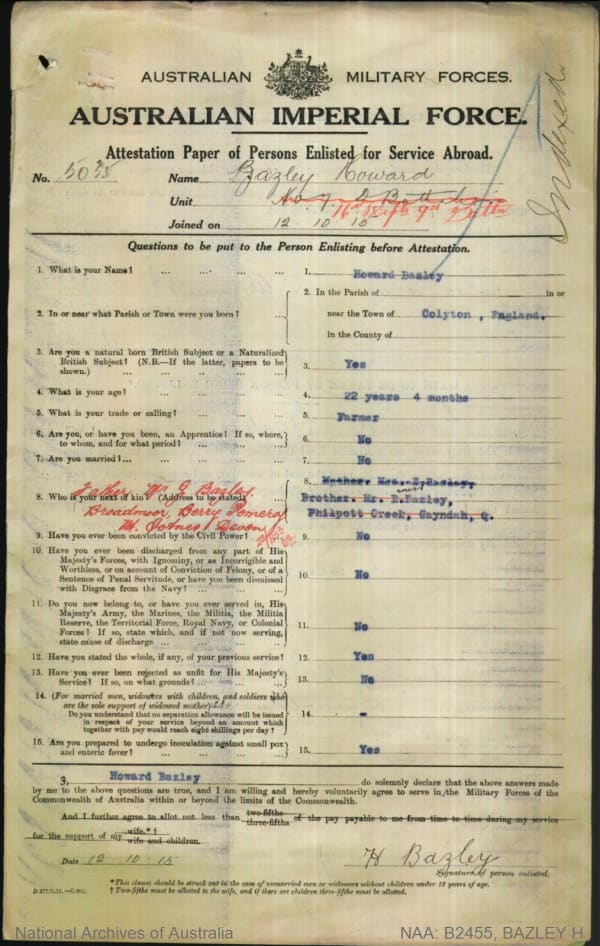 AUSTRALIAN MILITARY FORCES.
AUSTRALIAN IMPERIAL FORCE.
Indexed.
Attestation Paper of Persons Enlisted for Service Abroad.
No. 5035 Name Bazley Howard
Unit
16th Reinfts 9th Battn
Joined on 12 10 15
Questions to be put to the Person Enlisting before Attestation.
1. What is your Name? ... ... ... ... 1. Howard Bazley
2. In or near what Parish or Town were you born? ... 2. In the Parish of in or
near the Town of Colyton , England.
in the County of
3. Are you a natural born British Subject or a Naturalized
British Subject? (N.B.—If the latter, papers to be
shown.) ... ... ... ... ... 3. Yes
4. What is your age? ... ... ... ... 4. 22 years 4 months
5. What is your trade or calling? ... ... ... 5. Farmer
6. Are you, or have you been, an Apprentice? If so, where,
to whom, and for what period? ... ... ... 6. No
7. Are you married? ... ... ... ... 7. No
8. Who is your next of kin? (Address to be stated) 8. Mother. Mrs. E. Bazley,
Brother. Mr. E. Bazley,
Philpott Creek, Gayndah, Q.
Father Wm G Bazley.
Broadmoor, Berry Pomeroy
Nr Totnes Devon
9. Have you ever been convicted by the Civil Power? 9. No
10. Have you ever been discharged from any part of His
Majesty's Forces, with Ignominy, or as Incorrigible and
Worthless, or on account of Conviction of Felony, or of a
Sentence of Penal Servitude, or have you been dismissed
with Disgrace from the Navy? ... ... ... 10. No
11. Do you now belong to, or have you ever served in, His
Majesty's Army, the Marines, the Militia, the Militia
Reserve, the Territorial Force, Royal Navy, or Colonial
Forces? If so, state which, and if not now serving,
state cause of discharge ... ... ... ... 11. No
12. Have you stated the whole, if any, of your previous service? 12. Yes
13. Have you ever been rejected as unfit for His Majesty's
Service? If so, on what grounds? ... ... ... 13. No
14. (For married men, widowers with children, and soldiers who
are the sole support of widowed mother)
Do you understand that no separation allowance will be issued
in respect of your service beyond an amount which
together with pay would reach eight shillings per day? 14. -
15. Are you prepared to undergo inoculation against small pox
and enteric fever? ... ... ... ... 15. Yes
I, Howard Bazley do solemnly declare that the above answers made
by me to the above questions are true, and I am willing and hereby voluntarily agree to serve in the Military Forces of the
Commonwealth of Australia within or beyond the limits of the Commonwealth.
And I further agree to allot not less than two-fifths three-fifths of the pay payable to me from time to time during my service
for the support of my wife.*† wife and children.
Date 12 10 15 H Bazley
Signature of person enlisted.
*This clause should be struck out in the case of unmarried men or widowers without children under 18 years of age.
† Two-fifths must be allotted to the wife, and if there are children three-fifths must be allotted.
National Archives of Australia NAA: B2455, BAZLEY H